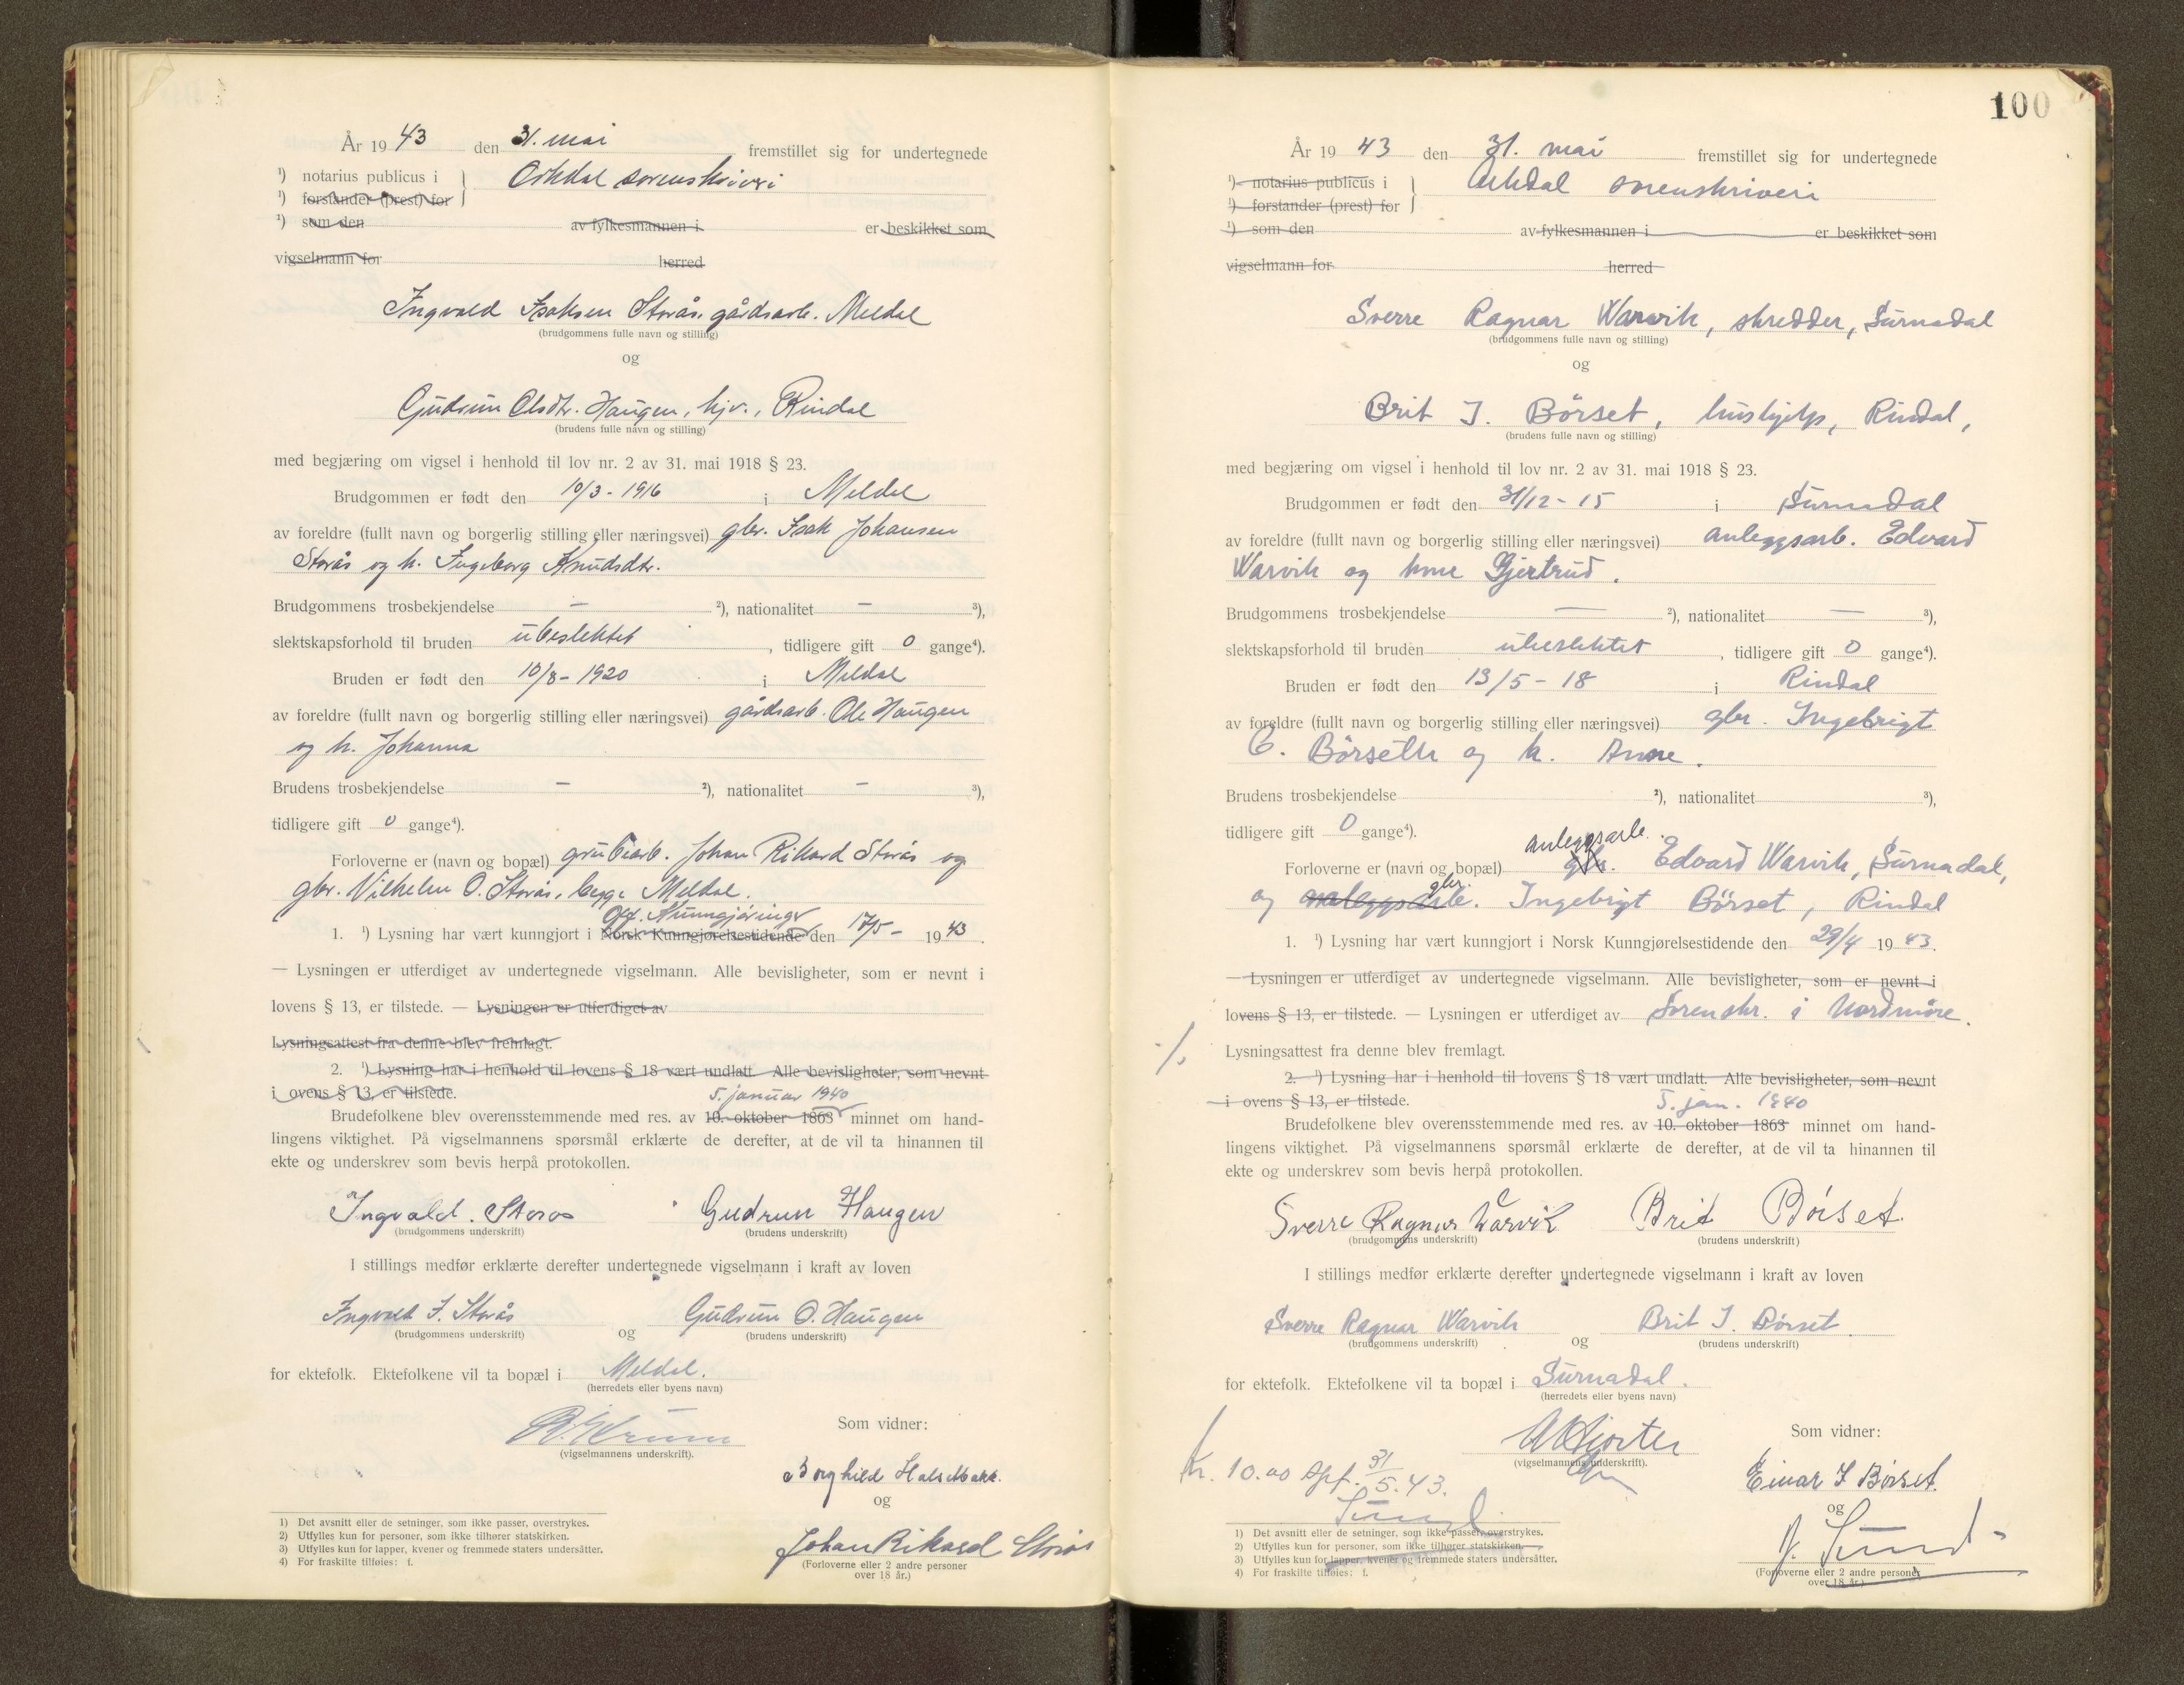 År 1943 den 31. mai fremstillet sig for undertegnede
¹) notarius publicus i } Orkdal sorenskriveri
¹) forstander (prest) for
¹) som den av fylkesmannen i er beskikket som
vigselmann for herred
Ingvald Isaksen Storås, gårdsarb. Meldal
(brudgommens fulle navn og stilling)
og
Gudrun Olsdtr. Haugen, hjv., Rindal
(brudens fulle navn og stilling)
med begjæring om vigsel i henhold til lov nr. 2 av 31. mai 1918 § 23.
Brudgommen er født den 10/3-1916 i Meldal
av foreldre (fullt navn og borgerlig stilling eller næringsvei) gbr. Isak Johansen
Storås og h. Ingeborg Knudsdtr.
Brudgommens trosbekjendelse — ²), nationalitet — ³),
slektskapsforhold til bruden ubeslektet, tidligere gift 0 gange⁴).
Bruden er født den 10/8-1920 i Meldal
av foreldre (fullt navn og borgerlig stilling eller næringsvei) gårdsarb. Ole Haugen
og h. Johanna
Brudens trosbekjendelse — ²), nationalitet — ³),
tidligere gift 0 gange⁴).
Forloverne er (navn og bopæl) grubearb. Johan Rikard Storås og
gbr. Vilhelm O. Storås, begge Meldal.
Off. Kunngjøringer
1. ¹) Lysning har vært kunngjort i Norsk Kunngjørelsestidende den 17/5- 1943.
— Lysningen er utferdiget av undertegnede vigselmann. Alle bevisligheter, som er nevnt i
lovens § 13, er tilstede. — Lysningen er utferdiget av
Lysningsattest fra denne blev fremlagt.
2. ¹) Lysning har i henhold til lovens § 18 vært undlatt. Alle bevisligheter, som nevnt
i ovens § 13, er tilstede.
5. januar 1940
Brudefolkene blev overensstemmende med res. av 10. oktober 1863 minnet om hand-
lingens viktighet. På vigselmannens spørsmål erklærte de derefter, at de vil ta hinannen til
ekte og underskrev som bevis herpå protokollen.
Ingvald. Storås Gudrun Haugen
(brudgommens underskrift) (brudens underskrift)
I stillings medfør erklærte derefter undertegnede vigselmann i kraft av loven
Ingvald I. Storås og Gudrun O. Haugen
(brudgommens underskrift) (brudens underskrift)
for ektefolk. Ektefolkene vil ta bopæl i Meldal.
(herredets eller byens navn)
(vigselmannens underskrift).
Som vidner:
Borghild
og
Johan Rikard Storås
(Forloverne eller 2 andre personer
over 18 år.)
1) Det avsnitt eller de setninger, som ikke passer, overstrykes.
2) Utfylles kun for personer, som ikke tilhører statskirken.
3) Utfylles kun for lapper, kvener og fremmede staters undersåtter.
4) For fraskilte tilføies: f.
100
År 1943 den 31. mai fremstillet sig for undertegnede
¹) notarius publicus i } Orkdal sorenskriveri
¹) forstander (prest) for
¹) som den av fylkesmannen i er beskikket som
vigselmann for herred
Sverre Ragnar Warvik, skredder, Surnadal
(brudgommens fulle navn og stilling)
og
Brit I. Børset, hushjelp, Rindal,
(brudens fulle navn og stilling)
med begjæring om vigsel i henhold til lov nr. 2 av 31. mai 1918 § 23.
Brudgommen er født den 31/12-15 i Surnadal
av foreldre (fullt navn og borgerlig stilling eller næringsvei) anleggsarb. Edvard
Warvik og hmr Gjertrud.
Brudgommens trosbekjendelse — ²), nationalitet — ³),
slektskapsforhold til bruden ubeslektet, tidligere gift 0 gange⁴).
Bruden er født den 13/5-18 i Rindal
av foreldre (fullt navn og borgerlig stilling eller næringsvei) gbr. Ingebrigt
E. Børseth og h. Anne.
Brudens trosbekjendelse ²), nationalitet ³),
tidligere gift 0 gange⁴).
anleggsarb.
Forloverne er (navn og bopæl) gbr. Edvard Warvik, Surnadal,
gbr.
og anleggsarb. Ingebrigt Børset, Rindal
1. ¹) Lysning har vært kunngjort i Norsk Kunngjørelsestidende den 29/4 1943.
— Lysningen er utferdiget av undertegnede vigselmann. Alle bevisligheter, som er nevnt i
lovens § 13, er tilstede. — Lysningen er utferdiget av Sorenskr. i Nordmøre.
Lysningsattest fra denne blev fremlagt.
2. ¹) Lysning har i henhold til lovens § 18 vært undlatt. Alle bevisligheter, som nevnt
i ovens § 13, er tilstede.
5. jan. 1940
Brudefolkene blev overensstemmende med res. av 10. oktober 1863 minnet om hand-
lingens viktighet. På vigselmannens spørsmål erklærte de derefter, at de vil ta hinannen til
ekte og underskrev som bevis herpå protokollen.
Sverre Ragnar Warvik Brit Børset.
(brudgommens underskrift) (brudens underskrift)
I stillings medfør erklærte derefter undertegnede vigselmann i kraft av loven
Sverre Ragnar Warvik og Brit I. Børset.
(brudgommens underskrift) (brudens underskrift)
for ektefolk. Ektefolkene vil ta bopæl i Surnadal.
(herredets eller byens navn)
(vigselmannens underskrift).
Kr. 10.00 31/5.43.
Som vidner:
Einar I Børset.
og
J. Sund
(Forloverne eller 2 andre personer
over 18 år.)
1) Det avsnitt eller de setninger, som ikke passer, overstrykes.
2) Utfylles kun for personer, som ikke tilhører statskirken.
3) Utfylles kun for lapper, kvener og fremmede staters undersåtter.
4) For fraskilte tilføies: f.